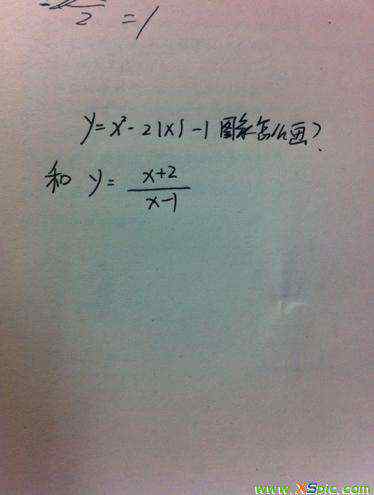 2 = 1
y = x² - 2|x| - 1 图象怎么画?
和 y = x+2
x-1
www.XSpic.com